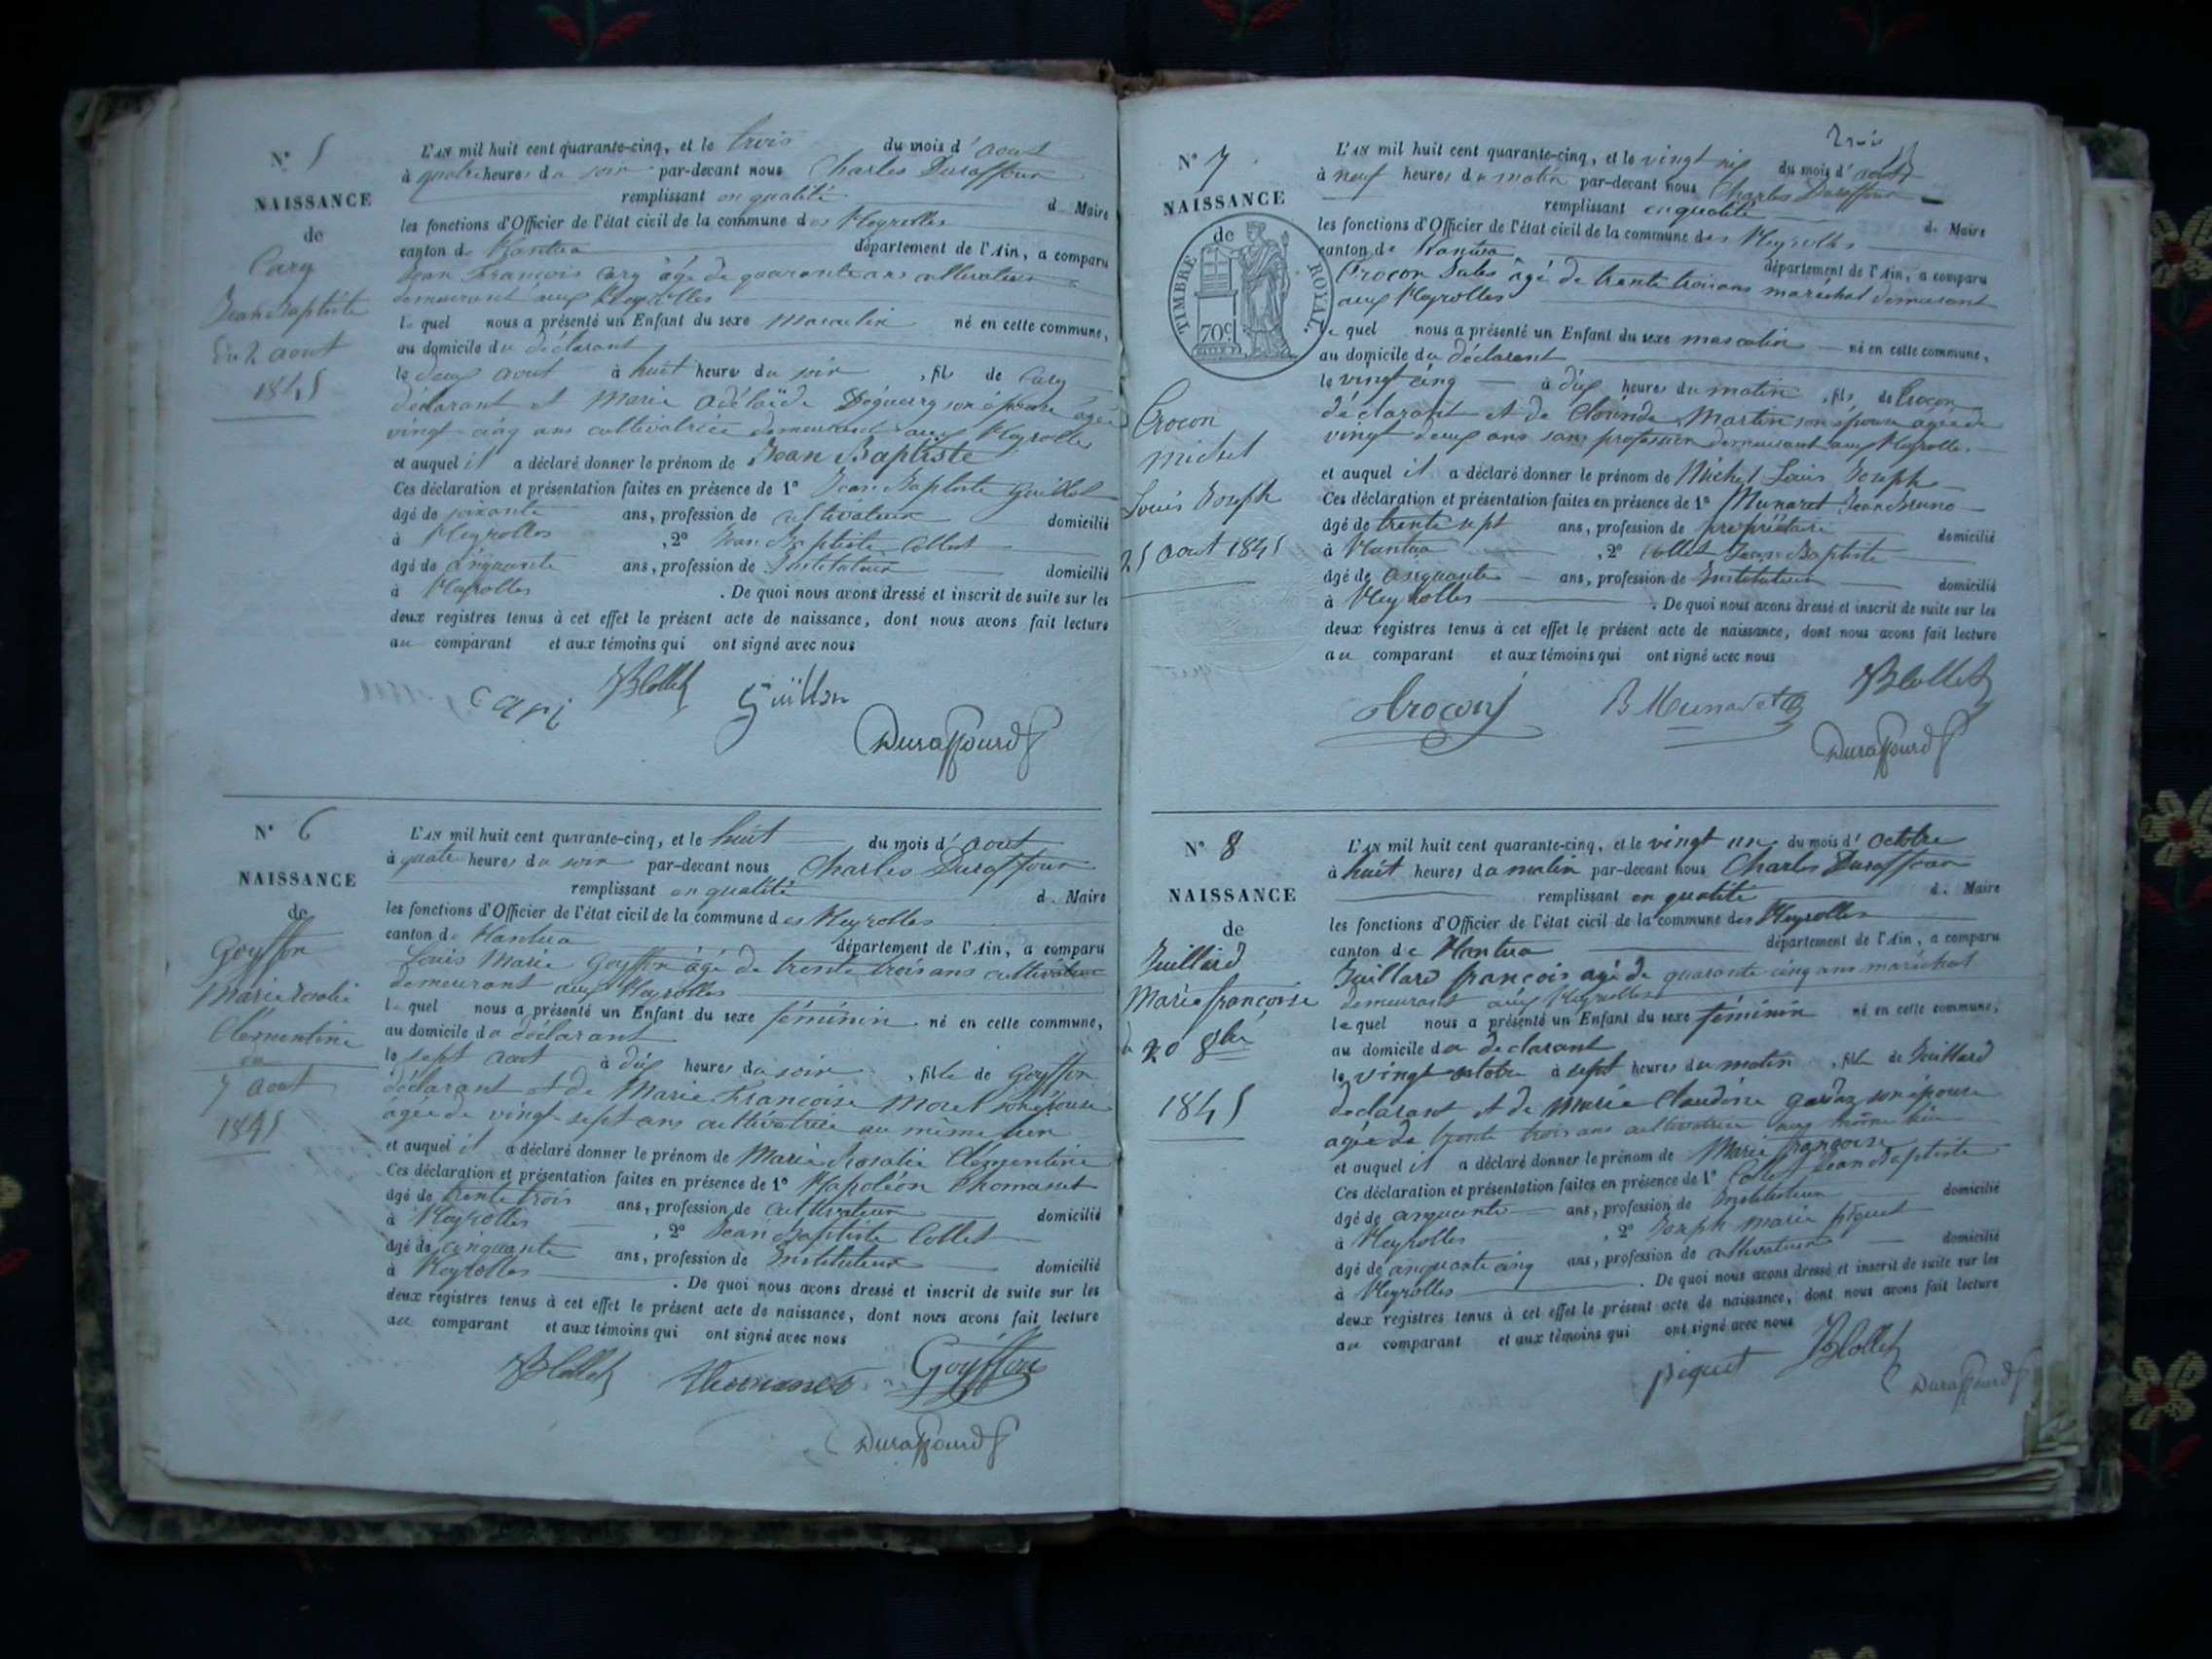 N° 5
NAISSANCE
de
Cary
Jean Baptiste
du 2 aout
1845
L'AN mil huit cent quarante-cinq, et le trois du mois d'aout
à quatre heures du soir par-devant nous Charles Duraffour
remplissant en qualité de Maire
les fonctions d'Officier de l'état civil de la commune des Neyrolles
canton de Nantua département de l'Ain, a comparu
Jean François Cary âgé de quarante ans cultivateur
demeurant aux Neyrolles
lequel nous a présenté un Enfant du sexe masculin né en cette commune,
au domicile du déclarant
le deux aout à huit heures du soir, fils de Cary
déclarant et Marie Adélaïde Deguerry son épouse âgée
vingt-cinq ans cultivatrice demeurant aux Neyrolles
et auquel il a déclaré donner le prénom de Jean Baptiste
Ces déclaration et présentation faites en présence de 1° Jean Baptiste Guillot
âgé de soixante ans, profession de cultivateur domicilié
à Neyrolles, 2° Jean Baptiste Collet
âgé de cinquante ans, profession de Instituteur domicilié
à Neyrolles. De quoi nous avons dressé et inscrit de suite sur les
deux registres tenus à cet effet le présent acte de naissance, dont nous avons fait lecture
au comparant et aux témoins qui ont signé avec nous
Cari JBCollet Guillon
Duraffourd
N° 6
NAISSANCE
de
Goyffon
Marie Rosalie
Clementine
du
7 aout
1845
L'AN mil huit cent quarante-cinq, et le huit du mois d'aout
à quatre heures du soir par-devant nous Charles Duraffour
remplissant en qualité de Maire
les fonctions d'Officier de l'état civil de la commune des Neyrolles
canton de Nantua département de l'Ain, a comparu
Louis Marie Goyffon âgé de trente trois ans cultivateur
demeurant aux Neyrolles
lequel nous a présenté un Enfant du sexe féminin né en cette commune,
au domicile du déclarant
le sept aout à dix heures du soir, fille de Goyffon
déclarant et de Marie Françoise Morel son épouse
âgée de vingt-sept ans cultivatrice au même lieu
et auquel il a déclaré donner le prénom de Marie Rosalie Clementine
Ces déclaration et présentation faites en présence de 1° Napoléon Thomasset
âgé de trente trois ans, profession de cultivateur domicilié
à Neyrolles, 2° Jean Baptiste Collet
âgé de cinquante ans, profession de Instituteur domicilié
à Neyrolles. De quoi nous avons dressé et inscrit de suite sur les
deux registres tenus à cet effet le présent acte de naissance, dont nous avons fait lecture
au comparant et aux témoins qui ont signé avec nous
JBCollet Thomasset Goyffon
Duraffourd
trois
N° 7
NAISSANCE
de
TIMBRE ROYAL.
70c
Crocon
Michel
Louis Joseph
25 aout 1845
L'AN mil huit cent quarante-cinq, et le vingt six du mois d'aout
à neuf heures du matin par-devant nous Charles Duraffour
remplissant en qualité de Maire
les fonctions d'Officier de l'état civil de la commune des Neyrolles
canton de Nantua département de l'Ain, a comparu
Crocon Jules âgé de trente trois ans maréchal demeurant
aux Neyrolles
lequel nous a présenté un Enfant du sexe masculin né en cette commune,
au domicile du déclarant
le vingt cinq à dix heures du matin, fils de Crocon
déclarant et de Clorinde Martin son épouse âgée de
vingt deux ans sans profession demeurant aux Neyrolles.
et auquel il a déclaré donner le prénom de Michel Louis Joseph
Ces déclaration et présentation faites en présence de 1° Munaret Jean Bruno
âgé de trente sept ans, profession de propriétaire domicilié
à Nantua, 2° Collet Jean Baptiste
âgé de cinquante ans, profession de Instituteur domicilié
à Neyrolles. De quoi nous avons dressé et inscrit de suite sur les
deux registres tenus à cet effet le présent acte de naissance, dont nous avons fait lecture
au comparant et aux témoins qui ont signé avec nous
Crocon B Munaret JBCollet
Duraffourd
N° 8
NAISSANCE
de
Juillard
Marie françoise
20 8bre
1845
L'AN mil huit cent quarante-cinq, et le vingt un du mois d'octobre
à huit heures du matin par-devant nous Charles Duraffour
remplissant en qualité de Maire
les fonctions d'Officier de l'état civil de la commune des Neyrolles
canton de Nantua département de l'Ain, a comparu
Juillard françois agé de quarante cinq ans maréchal
demeurant aux Neyrolles
lequel nous a présenté un Enfant du sexe féminin né en cette commune,
au domicile du declarant
le vingt octobre à sept heures du matin, fille de Juillard
declarant et de Marie Claudine son épouse
agée de trente trois ans cultivatrice au même lieu
et auquel il a déclaré donner le prénom de Marie françoise
Ces déclaration et présentation faites en présence de 1° Collet Jean Baptiste
âgé de cinquante ans, profession de Instituteur domicilié
à Neyrolles, 2° Joseph Marie piquet
âgé de cinquante cinq ans, profession de cultivateur domicilié
à Neyrolles. De quoi nous avons dressé et inscrit de suite sur les
deux registres tenus à cet effet le présent acte de naissance, dont nous avons fait lecture
au comparant et aux témoins qui ont signé avec nous
piquet JBCollet
Duraffourd